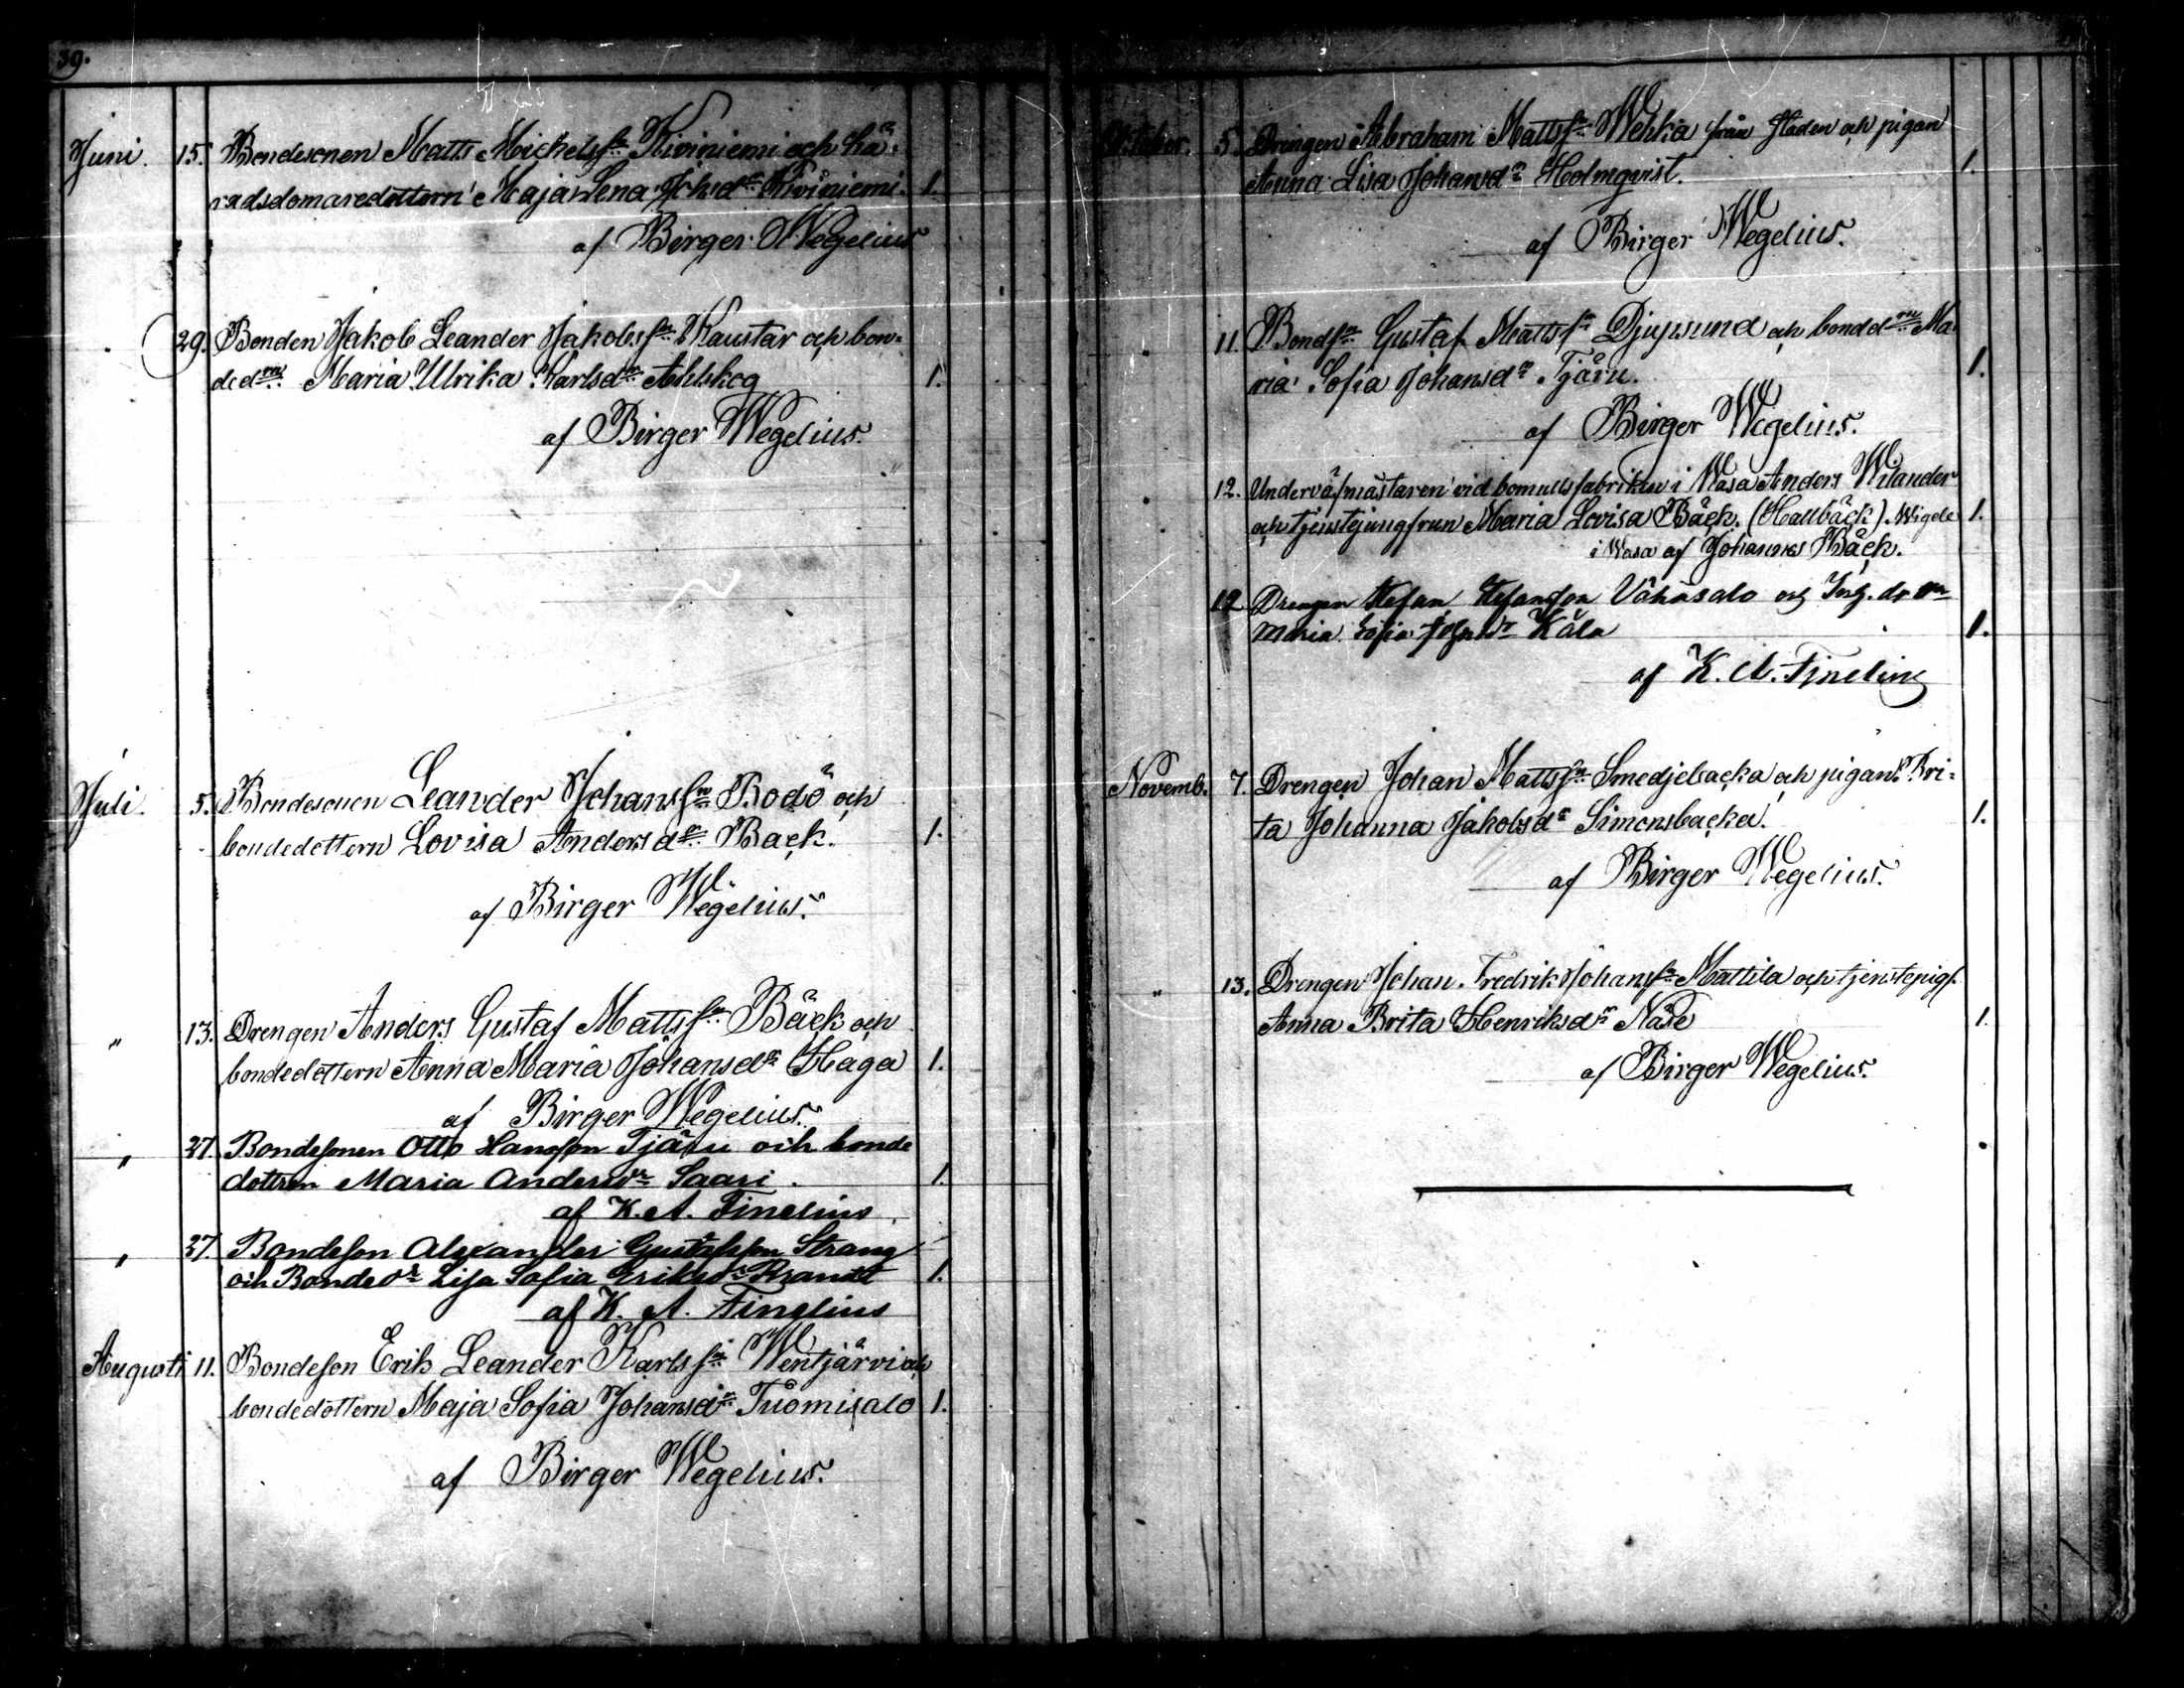 39.
Juni. 15. Bondesonen Matts Mickelsson Kiviniemi och hä-
radsdomaredottern Maja Lena Johsdr Kiviniemi. 1.
af Birger Wegelius
29. Bonden Jakob Leander Jakobsson Kaustar och bon-
dedrn Maria Ulrika Karlsdr Ahlskog 1.
af Birger Wegelius.
Juli. 5. Bondesonen Leander Johansson Bodö och
bondedottern Lovisa Andersdr Back. 1.
af Birger Wegelius.
" 13. Drengen Anders Gustaf Mattsson Bäck och
bondedottern Anna Maria Johansdr Haga 1.
af Birger Wegelius.
" 27 Bondesonen Otto Hansson Tjäru och bonde
dottren Maria Andersdr Saari. 1.
af K. A. Finelius
" 27 Bondeson Alexander Gustafsson Strang
och Bondedr Lisa Sofia Eriksdr Brandt 1.
af K. A. Finelius
Augusti 11. Bondeson Erik Leander Karlsson Wentjärvi och
bondedottern Maja Sofia Johansdr Tuomisalo 1.
af Birger Wegelius.
Oktober. 5. Drengen Abraham Mattsson Wehka från Staden och pigan
Anna Lisa Johansdr Holmqvist. 1.
af Birger Wegelius.
" 11. Bondsn Gustaf Mattsson Djupsund och bonddrn Ma-
ria Sofia Johansdr Tjäru. 1.
af Birger Wegelius.
" 12. Underväfmästaren vid bomullsfabriken i Wasa Anders Wilander
och tjenstejungfrun Maria Lovisa Bäck. (Hallbäck). Wigde 1.
i Wasa af Johannes Bäck.
12 Drengen Stefan Stefansson Vähäsalo och Inh. drn
Maria Sofia Käla 1.
af K. A. Finelius
Novemb. 7. Drengen Johan Mattsson Smedjebacka och pigan Bri-
ta Johanna Jakobsdr Simonsbacka. 1.
af Birger Wegelius.
" 13. Drengen Johan Fredrik Johansson Mattila och tjenstepig.
Anna Brita Henriksdr Näse 1.
af Birger Wegelius.